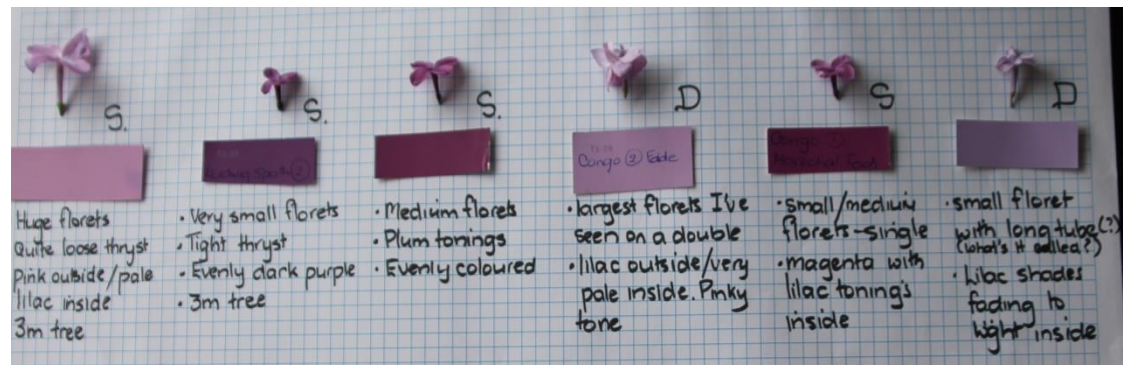 S.
Huge florets
Quite loose thryst
Pink outside/pale
lilac inside
3m tree
S.
Ludwig Spath ②
• Very small florets
• Tight thryst
• Evenly dark purple
• 3m tree
S.
• Medium florets
• Plum tonings
• Evenly coloured
D
Congo ② Fade
• largest florets I've
seen on a double
• lilac outside/very
pale inside. Pinky
tone
S
Congo ①
Foch
• small/medium
florets-single
• magenta with
lilac toning's
inside
D
• small floret
with long tube(?)
(what's it called?)
• Lilac shades
fading to
light inside